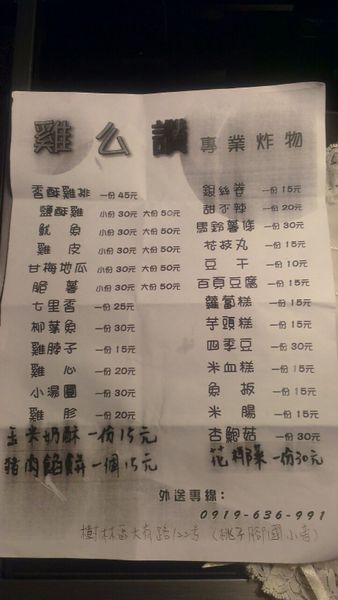 雞么讚 專業炸物
香酥雞排 一份 45元
鹽酥雞 小份 30元 大份 50元
魷魚 小份 30元 大份 50元
雞皮 小份 30元 大份 50元
甘梅地瓜 小份 30元 大份 50元
脆薯 小份 30元 大份 50元
七里香 一份 25元
柳葉魚 一份 30元
雞脖子 一份 15元
雞心 一份 20元
小湯圓 一份 30元
雞胗 一份 20元
玉米奶酥 一份15元
豬肉餡餅 一個15元
銀絲卷 一份 15元
甜不辣 一份 20元
馬鈴薯條 一份 30元
花枝丸 一份 15元
豆干 一份 10元
百頁豆腐 一份 15元
蘿蔔糕 一份 15元
芋頭糕 一份 15元
四季豆 一份 30元
米血糕 一份 15元
魚板 一份 15元
米腸 一份 15元
杏鮑菇 一份 30元
花椰菜 一份30元
外送專線:
0919-636-991
樹林區大有路122号 (桃子腳國小旁)